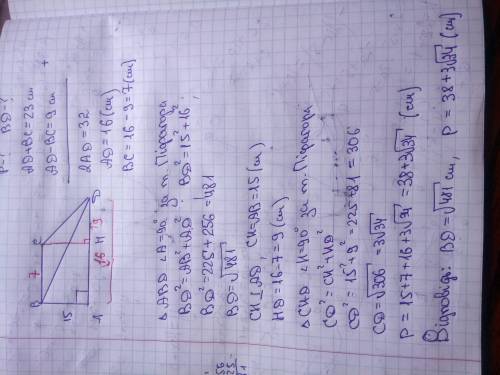 P-? BD-?
AD+BC=23 см
AD-BC=9 см
+
2AD=32
AD=16 (см)
BC=16-9=7 (см)
B
C
7
15
A
16
H
9
D
△ABD ∠A=90° за т. Піфагора
BD²=AB²+AD²; BD²=15²+16²;
BD²=225+256=481
BD=√481
CH⊥AD, CH=AB=15 (см)
HD=16-7=9 (см)
△CHD ∠H=90° за т. Піфагора
CD²=CH²+HD²
CD²=15²+9²=225+81=306
CD=√306=3√34
P=15+7+16+3√34=38+3√34 (см)
Відповідь: BD=√481 см, P=38+3√34 (см)